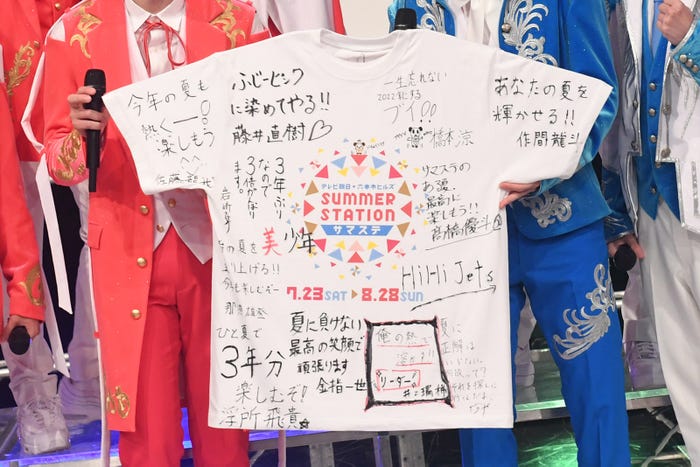 今年の夏も
熱く
楽しもう
ふじーピンク
に染めてやる!!
藤井直樹♡
一生忘れない
2022年にする
ブイ
橋本涼
あなたの夏を
輝かせる!!
作間龍斗
3年ぶり
なので
テレビ朝日・六本木ヒルズ
SUMMER
STATION
サマステ
7.23SAT▶8.28SUN
サマステの
最高に
楽しもう!!
髙橋優斗
美少年
HiHi Jets
ひと夏で
3年分
楽しむぞ!
浮所飛貴
夏に負けない
最高の笑顔で
頑張ります
金指一世
俺の熱で
溶かす!!
"リーダー"
井上瑞稀
夏に
正解は